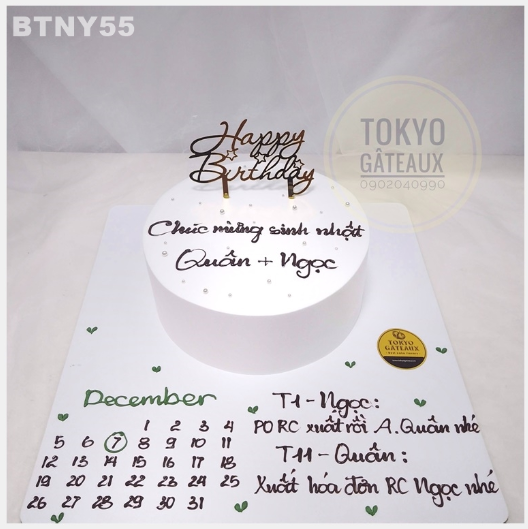 BTNY55
TOKYO
GÂTEAUX
0902040990
Happy
Birthday
Chúc mừng sinh nhật
Quân + Ngọc
TOKYO
GÂTEAUX
December
1 2 3 4
5 6 7 8 9 10 11
12 13 14 15 16 17 18
19 20 21 22 23 24 25
26 27 28 29 30 31
T1 - Ngọc:
PO RC xuất rồi A. Quân nhé
T11 - Quân:
Xuất hóa đơn RC Ngọc nhé